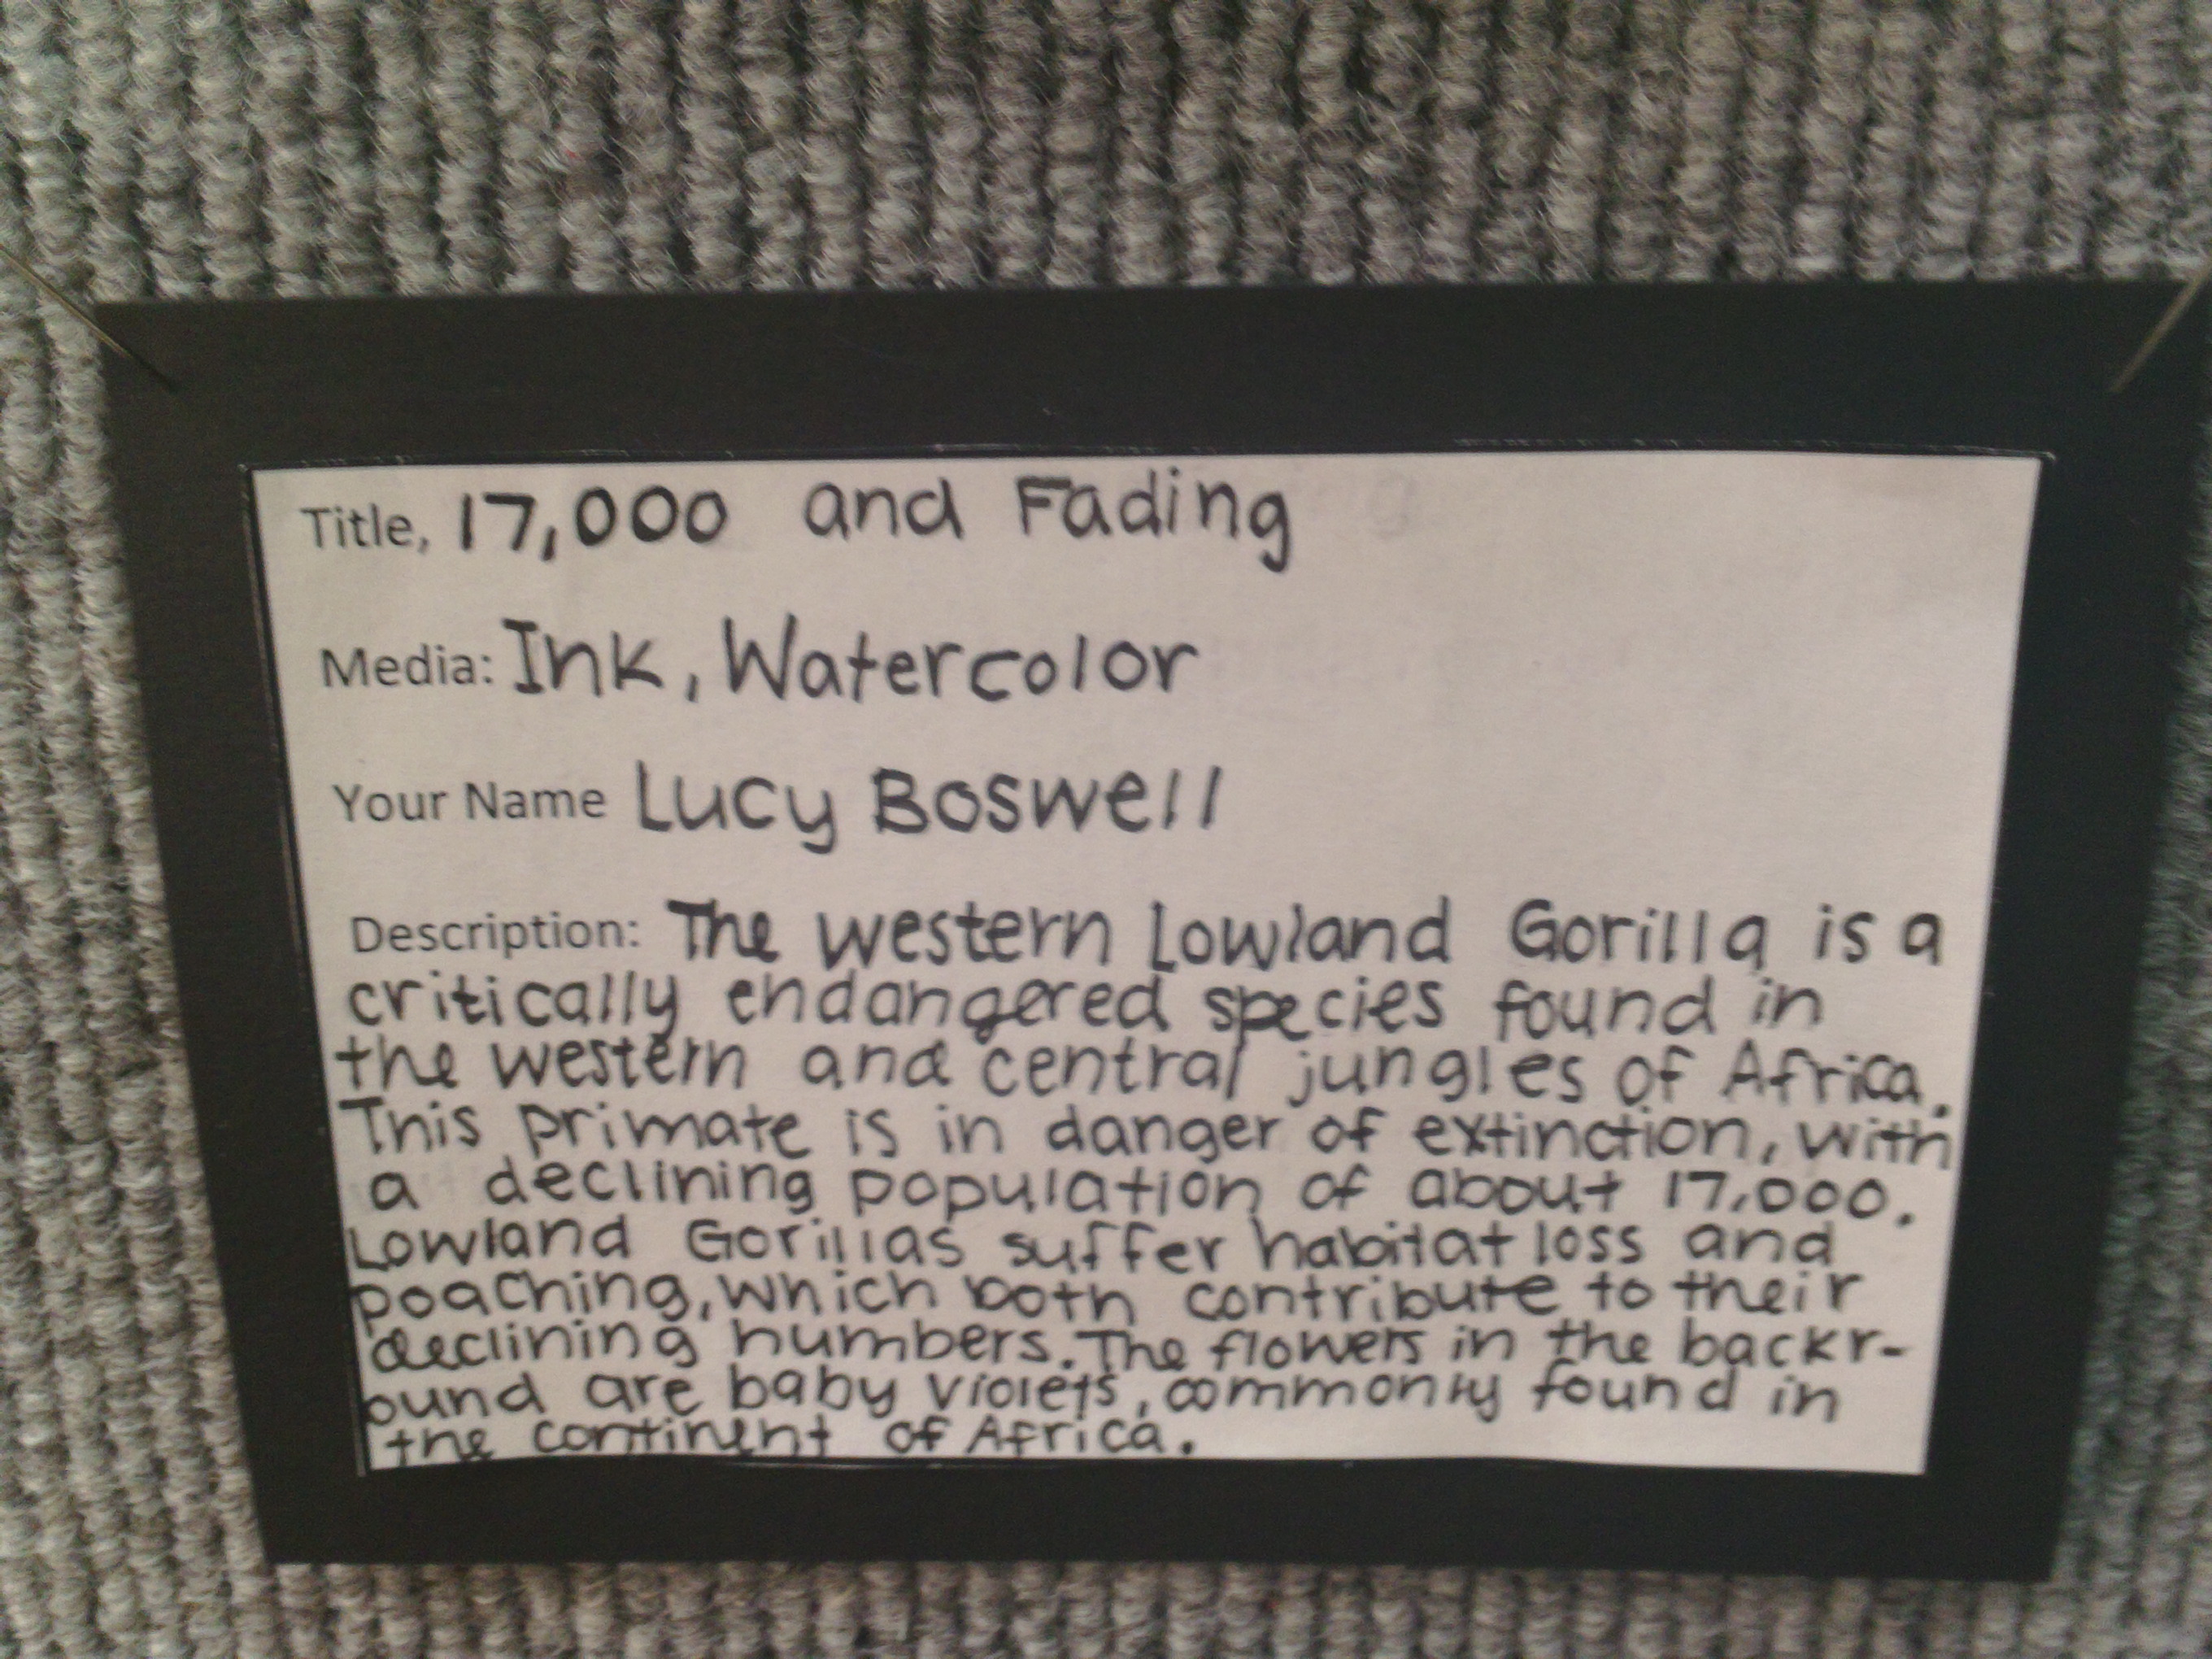 Title, 17,000 and Fading
Media: Ink, Watercolor
Your Name Lucy Boswell
Description: The Western Lowland Gorilla is a
critically endangered species found in
the western and central jungles of Africa.
This primate is in danger of extinction, with
a declining population of about 17,000.
Lowland Gorillas suffer habitat loss and
poaching, which both contribute to their
declining numbers. The flowers in the backr-
ound are baby violets, commonly found in
the continent of Africa.